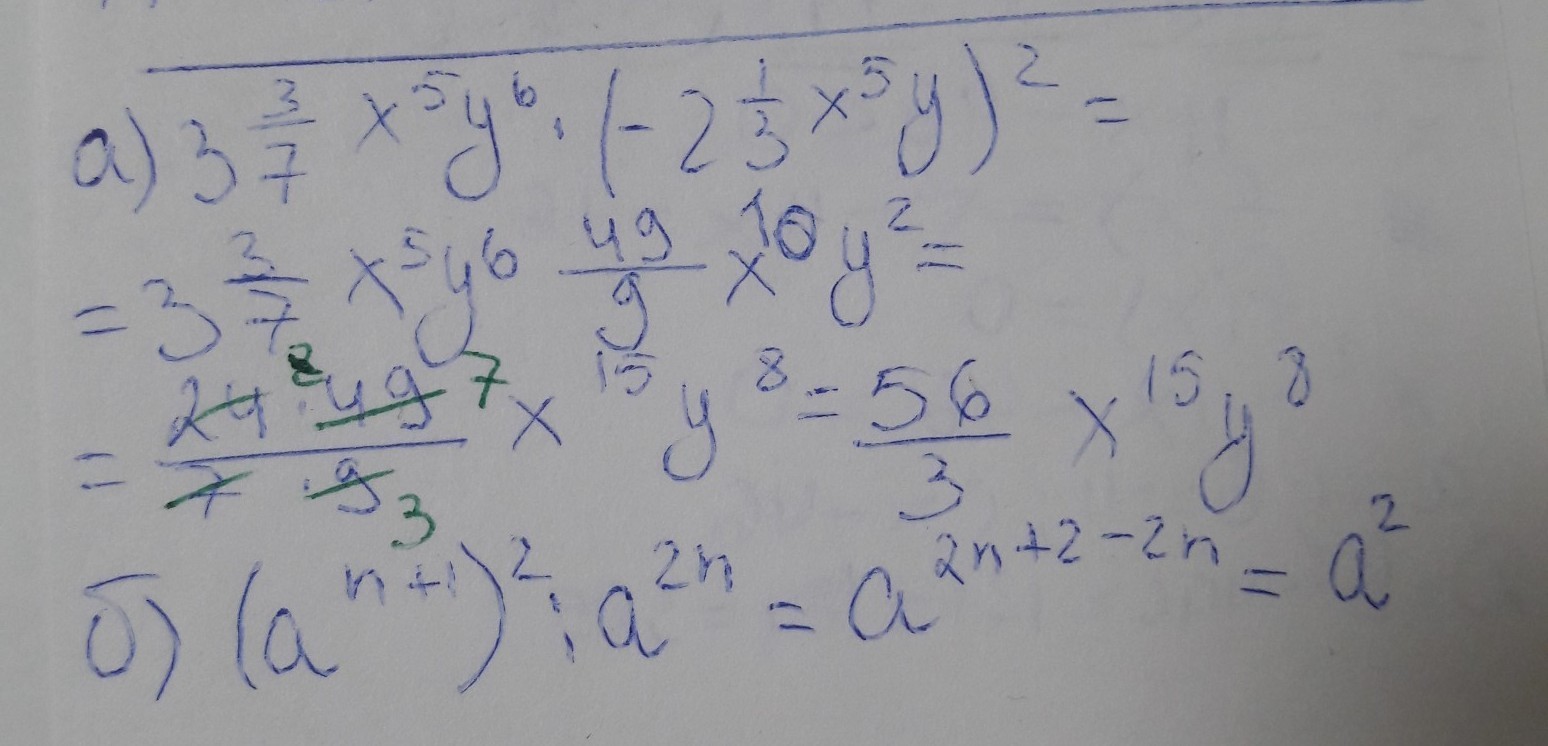 а) 3 3/7 x⁵y⁶ · (-2 1/3 x⁵y)² =
= 3 3/7 x⁵y⁶ 49/9 x¹⁰y² =
= 24 8 · 49 7 / 7 · 9 3 x¹⁵y⁸ = 56/3 x¹⁵y⁸
б) (aⁿ⁺¹)² : a²ⁿ = a²ⁿ⁺²⁻²ⁿ = a²